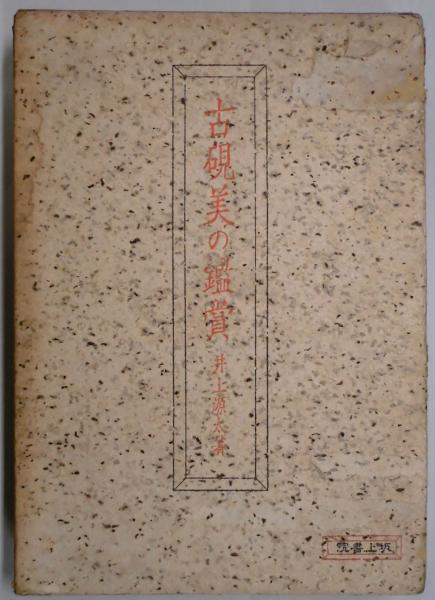 古硯美の鑑賞
井上源太著
坂上書院